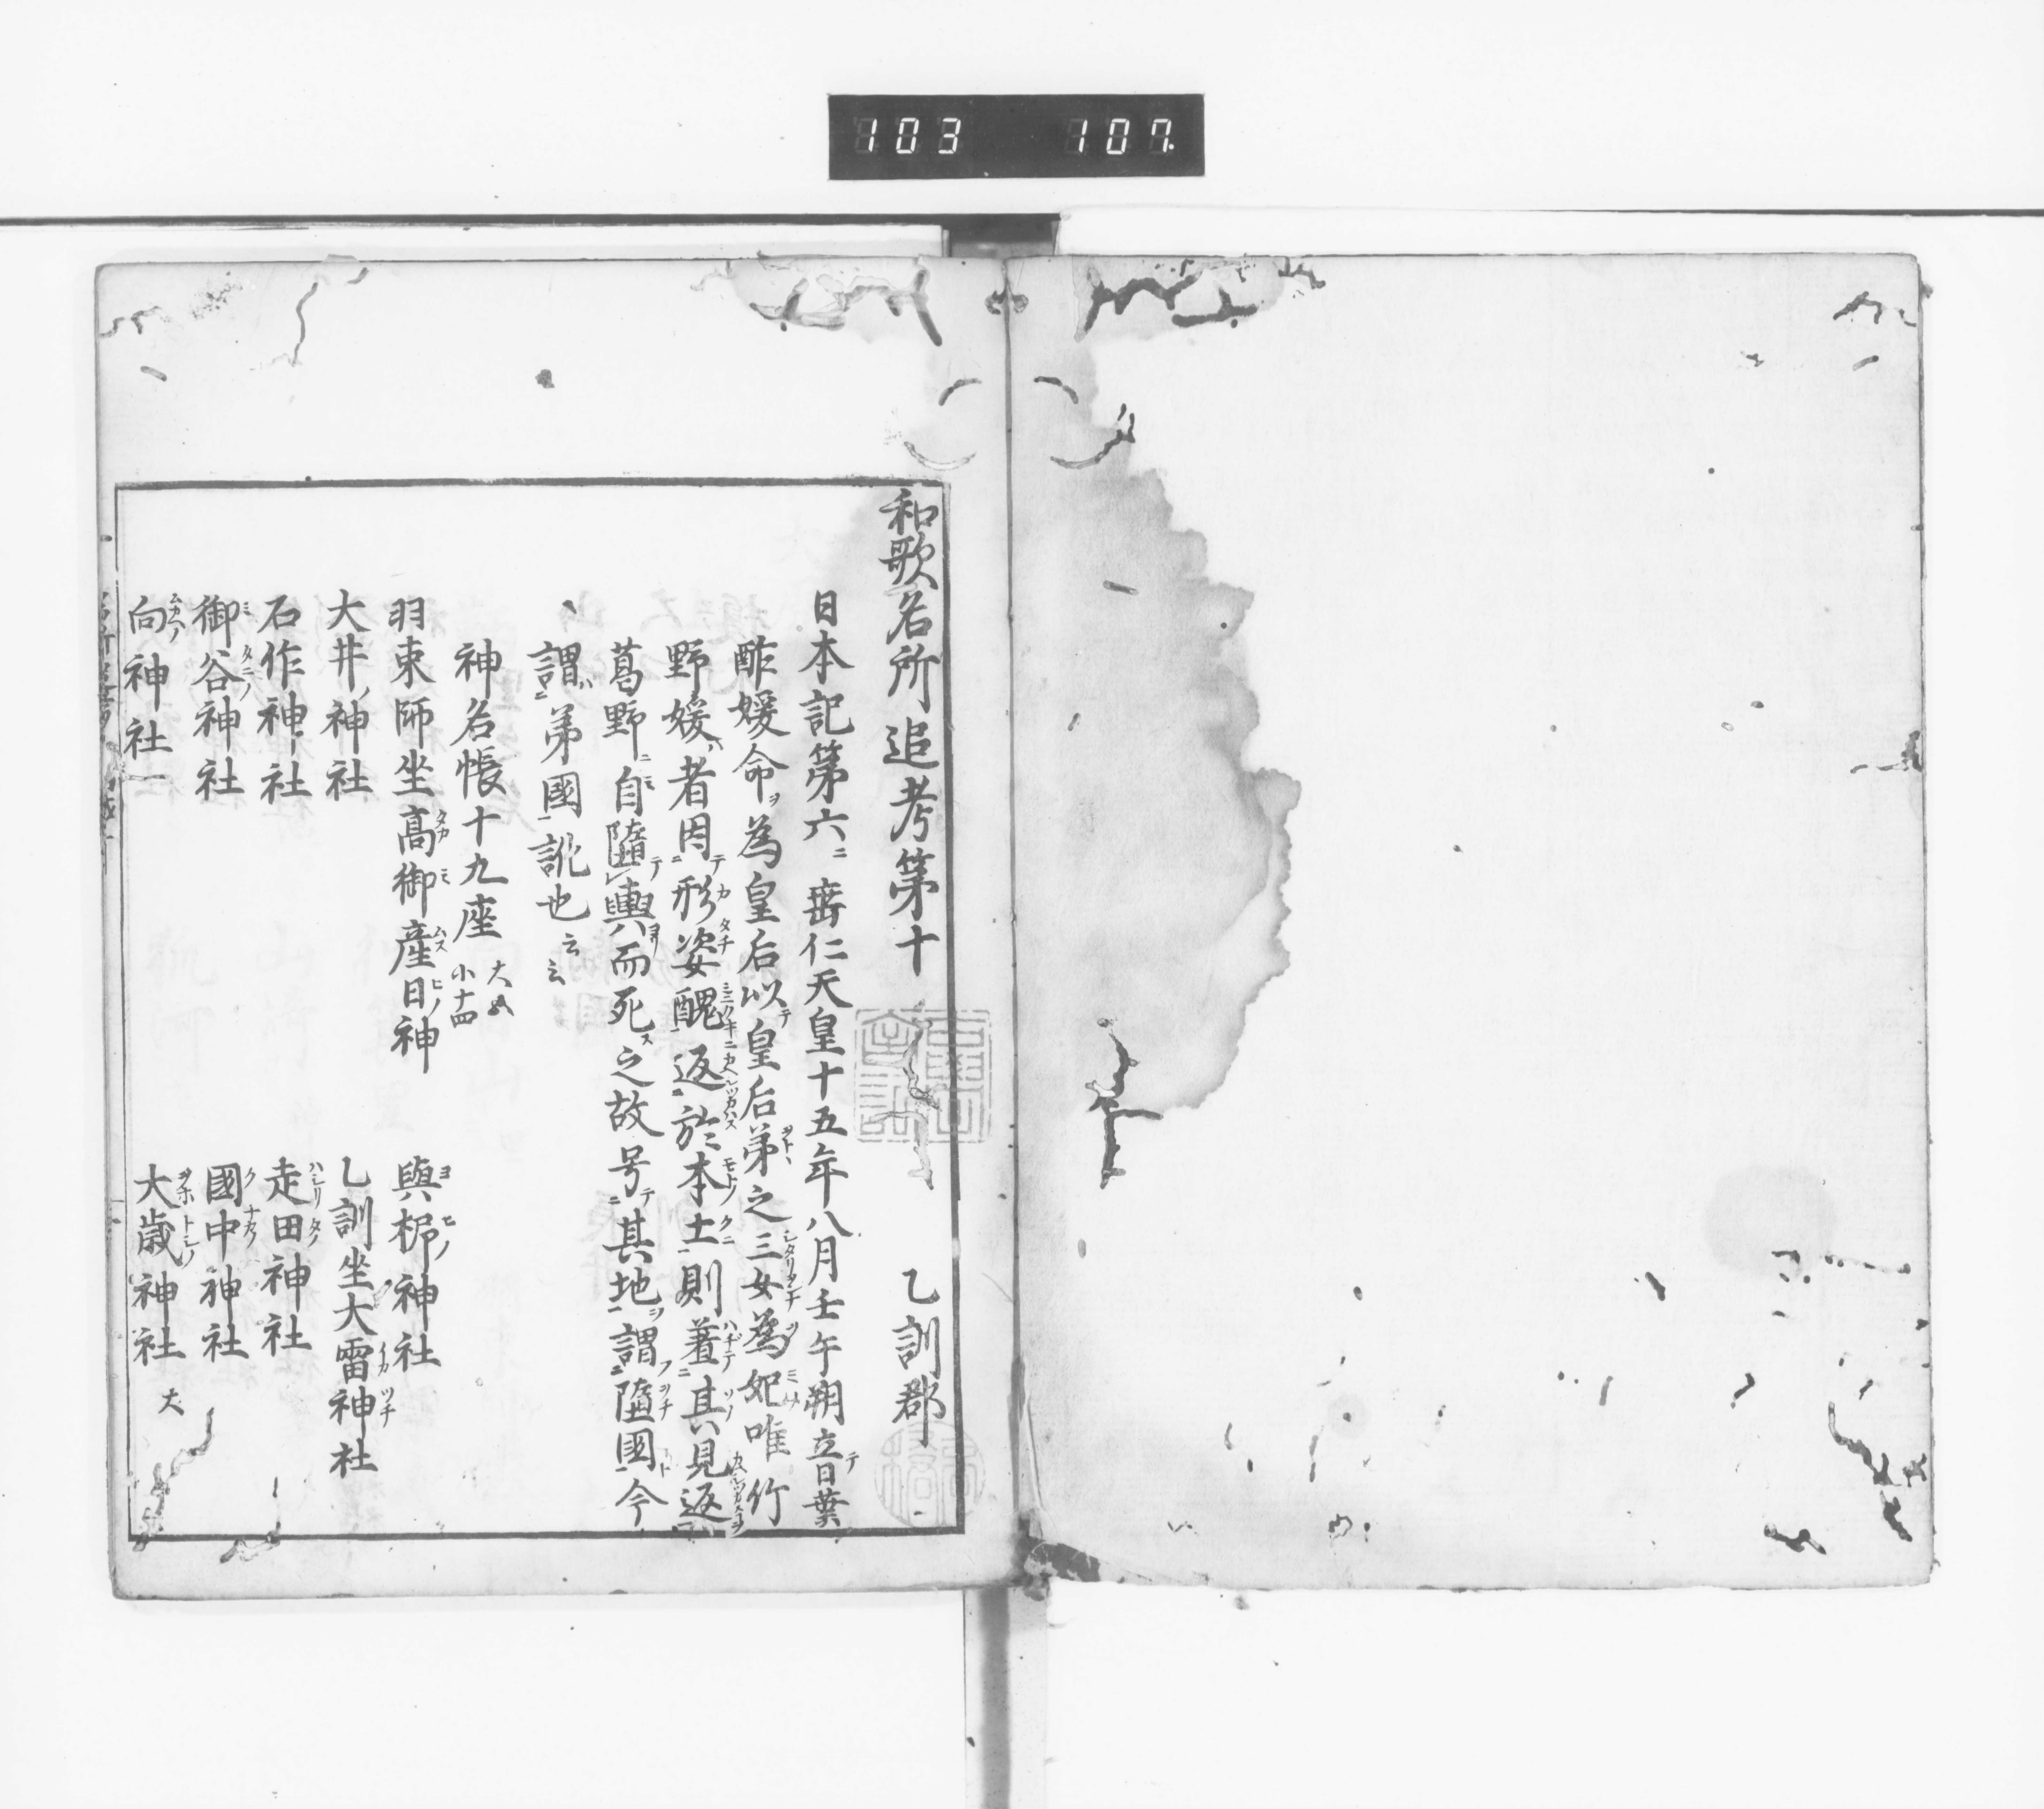 103 107.
和歌名所追考第十 乙訓郡
日本記第六ニ 垂仁天皇十五年八月壬午朔立テ日葉
酢媛命ヲ為皇后以テ皇后弟之三女為妃唯竹
野媛者因テ形姿醜返於本土則羞其見返
葛野ニ自墮輿而死之故号テ其地ヲ謂墮國今
謂弟國訛也云云
神名帳十九座 大五 小十四
羽束師坐高御産日神 與杼神社
大井ノ神社 乙訓坐大雷神社
石作神社 走田神社
御谷神社 國中神社
向神社 大歳神社 大